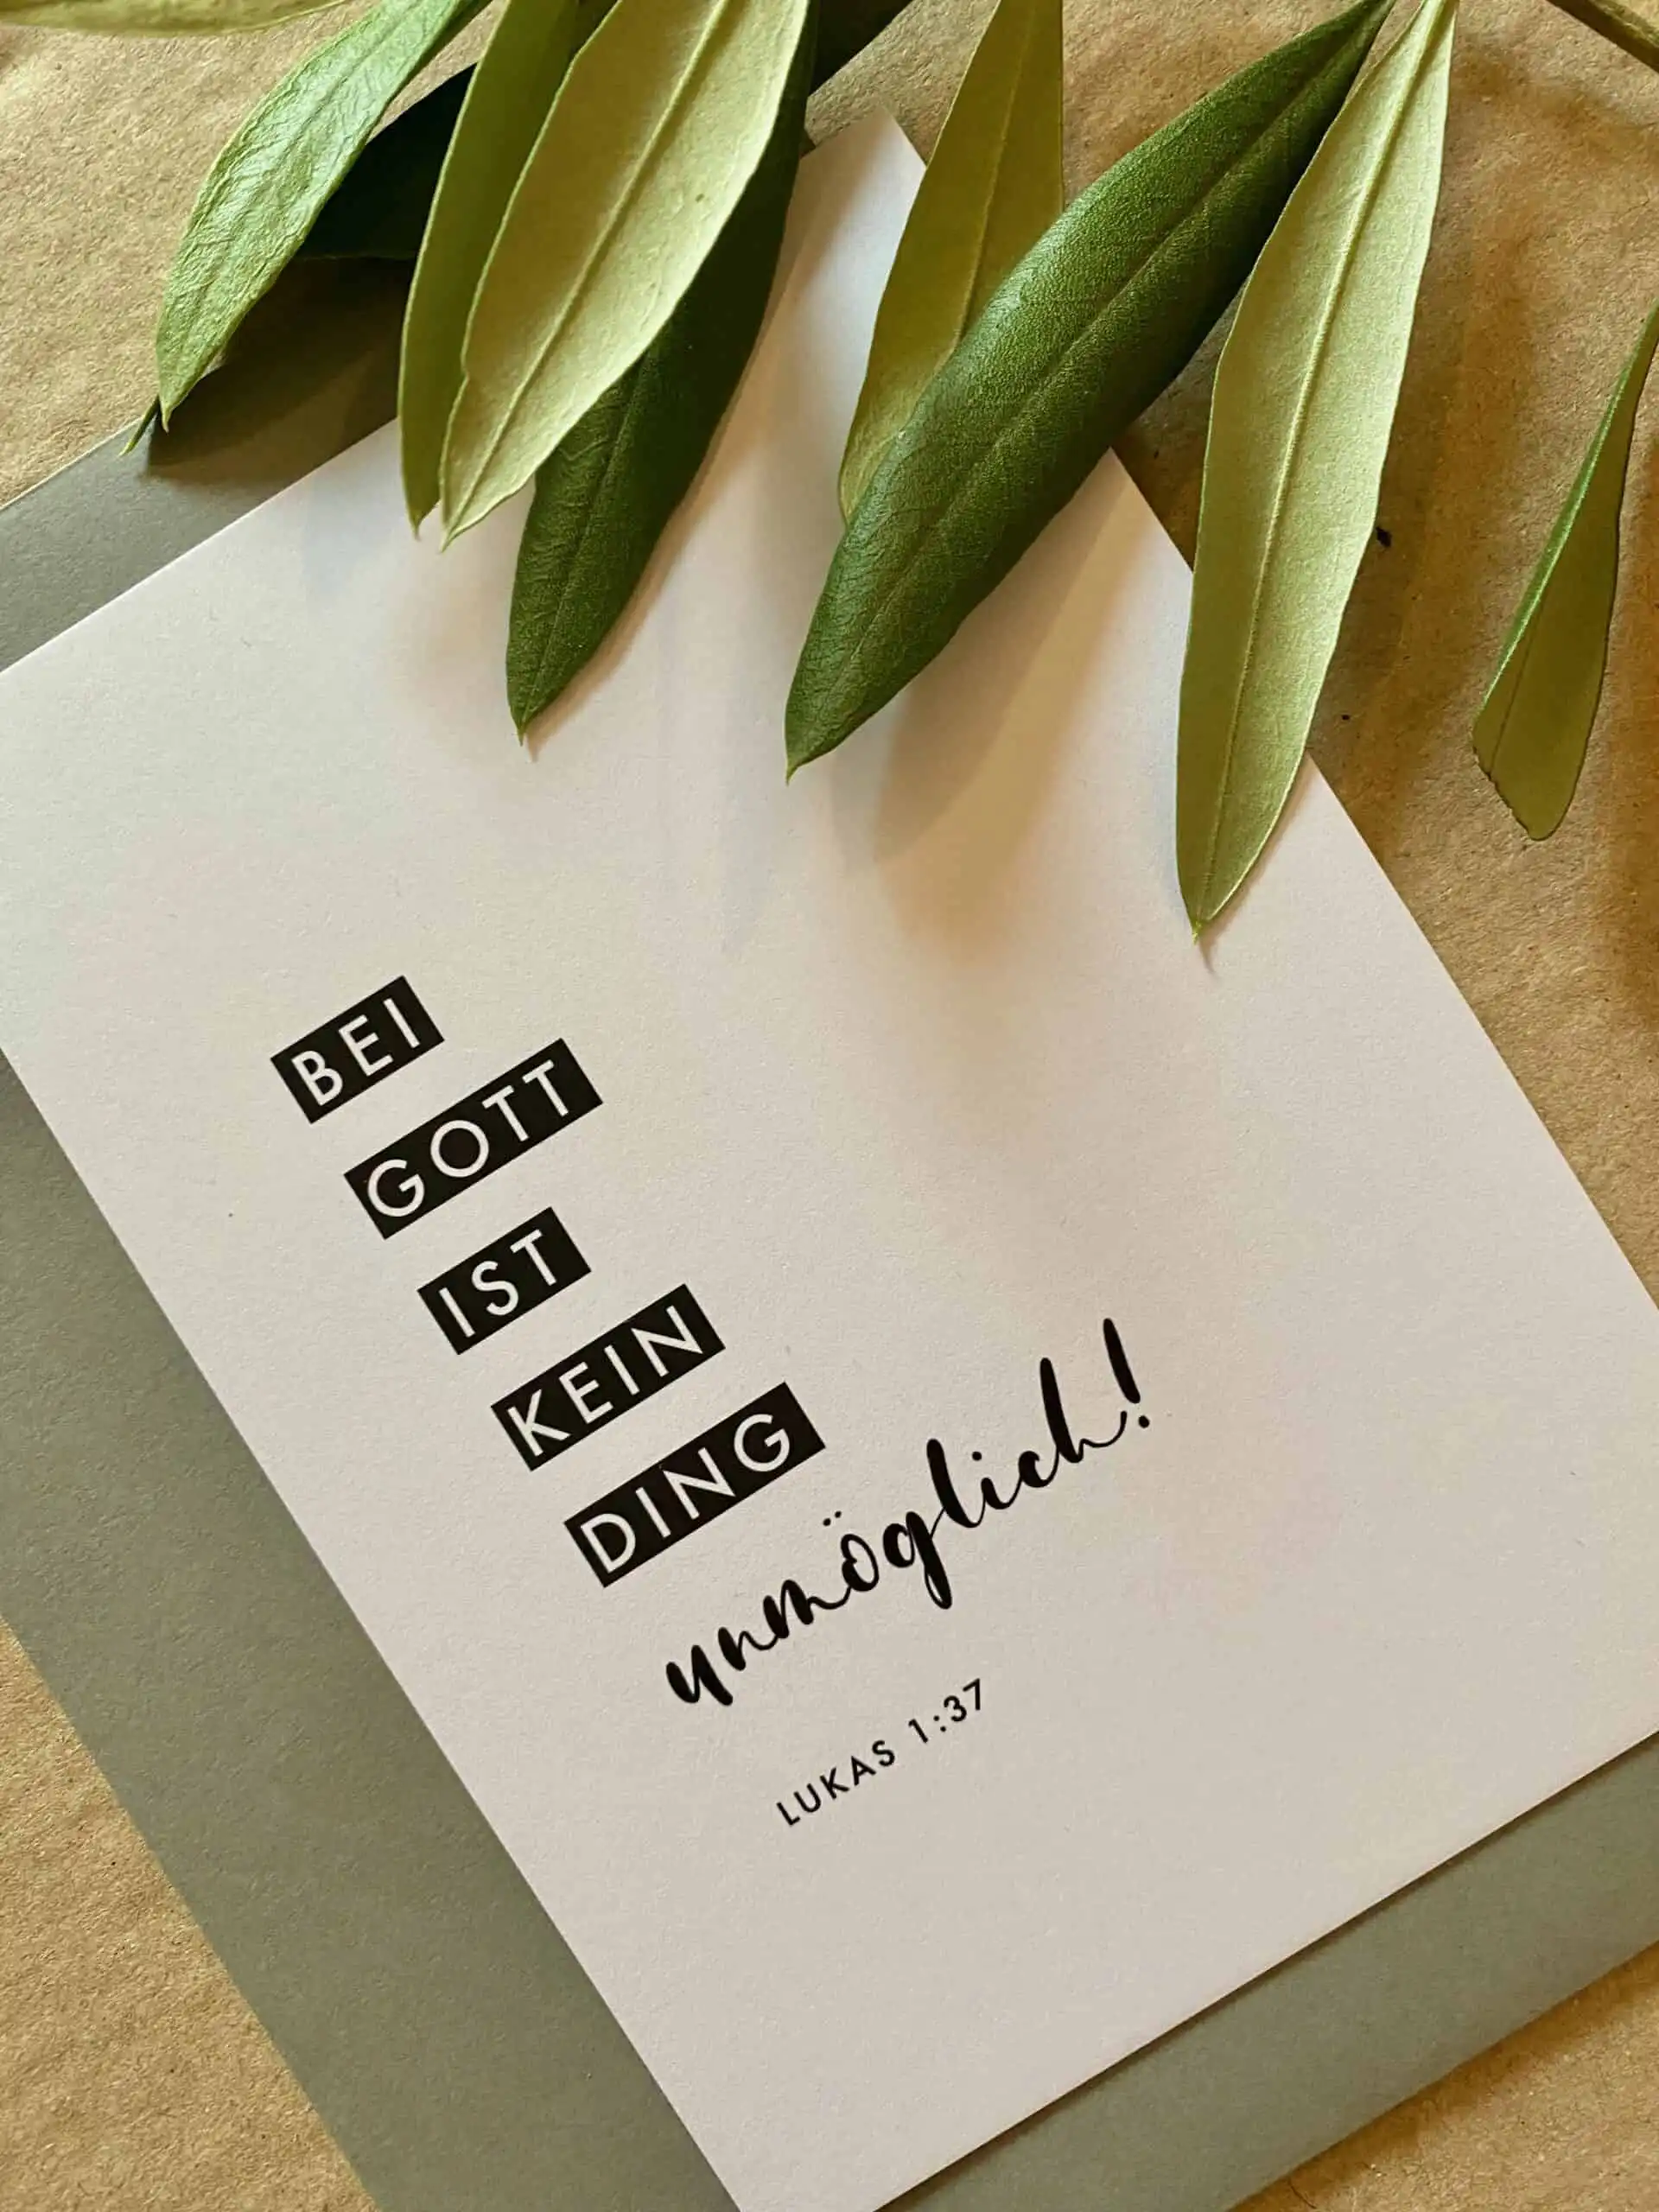 BEI
GOTT
IST
KEIN
DING
unmöglich!
LUKAS 1:37